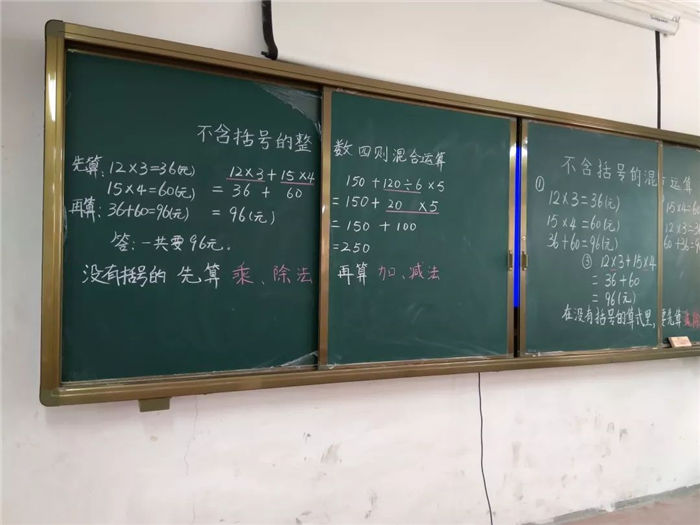 不含括号的整数四则混合运算
先算:12×3=36(元)
15×4=60(元)
再算:36+60=96(元)
答:一共要96元。
12×3+15×4
=36+60
=96(元)
150+120÷6×5
=150+20×5
=150+100
=250
没有括号的 先算 乘、除法 再算 加、减法
不含括号的混 运算
① 12×3=36(元)
15×4=60(元)
36+60=96(元)
③ 12×3+15×4
=36+60
=96(元)
15×4=6
12×3=3
60+36=9
在没有括号的算式里,要先算乘除